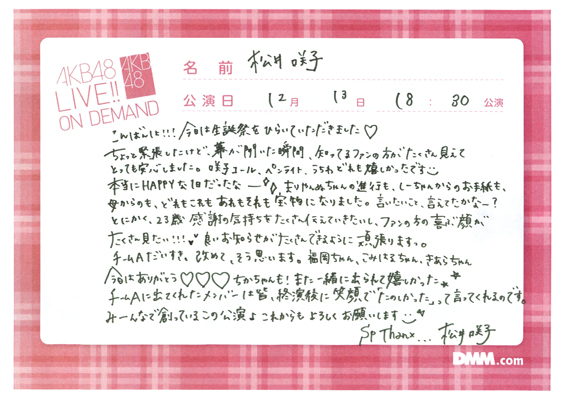 AKB48
LIVE!!
ON DEMAND
AKB
48
名前 松井咲子
公演日 12月 13日 18:30 公演
こんばんは!!! 今日は生誕祭をひらいていただきました♡
ちょっと緊張したけど、幕が開いた瞬間、知ってるファンの方がたくさん見えて
とっても安心しました。咲子コール、ペンライト、うちわどれも嬉しかったです
本当にHAPPYな1日だったなー まりやんぬちゃんの進行も、しーちゃんからのお手紙も、
母からのも、どれもこれもあれもそれも宝物になりました。言いたいこと、言えてたかなー?
とにかく、23歳 感謝の気持ちをたくさん伝えていきたいし、ファンの方の喜ぶ顔が
たくさん見たい!!! 良いお知らせがたくさんできるように頑張ります。
チームAだいすき。改めて、そう思います。福岡ちゃん、こみはるちゃん、きあらちゃん
今日はありがとう♡♡♡ ちかちゃんも! また一緒に出られて嬉しかった
チームAに出てくれたメンバーは皆、終演後に笑顔で「たのしかった」って言ってくれるのです。
みーんなで創っているこの公演 これからもよろしくお願いします
Sp Thanx... 松井咲子
DMM.com